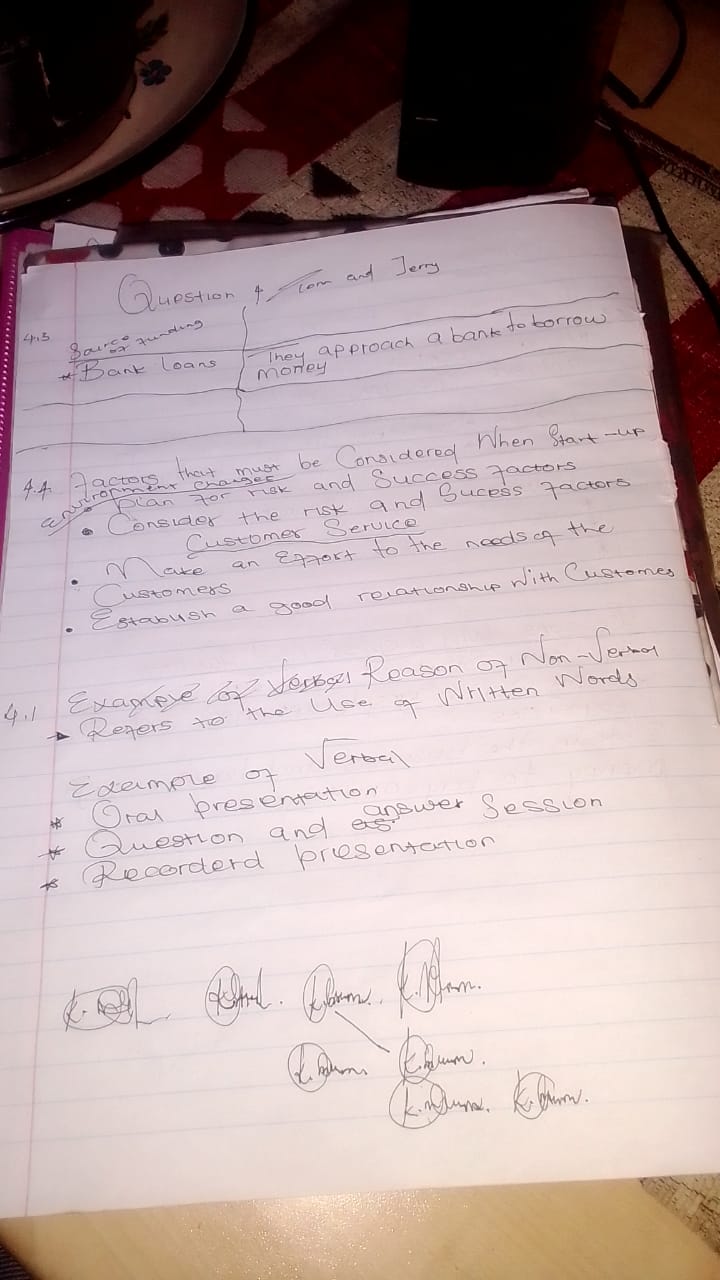 Question 4 Tom and Jerry
4.3 Source of funding
* Bank loans They approach a bank to borrow
money
4.4 Factors that must be Considered When Start-up
environment changes
• plan for risk and Success factors
• Consider the risk and Sucess factors
Customer Service
• Make an Effort to the needs of the
Customers
• Establish a good relationship With Customes
4.1 Example of Verbal Reason of Non-Verbal
Refers to the Use of Written Words
Example of Verbal
* Oral presentation
* Question and answer Session
* Recorderd presentation